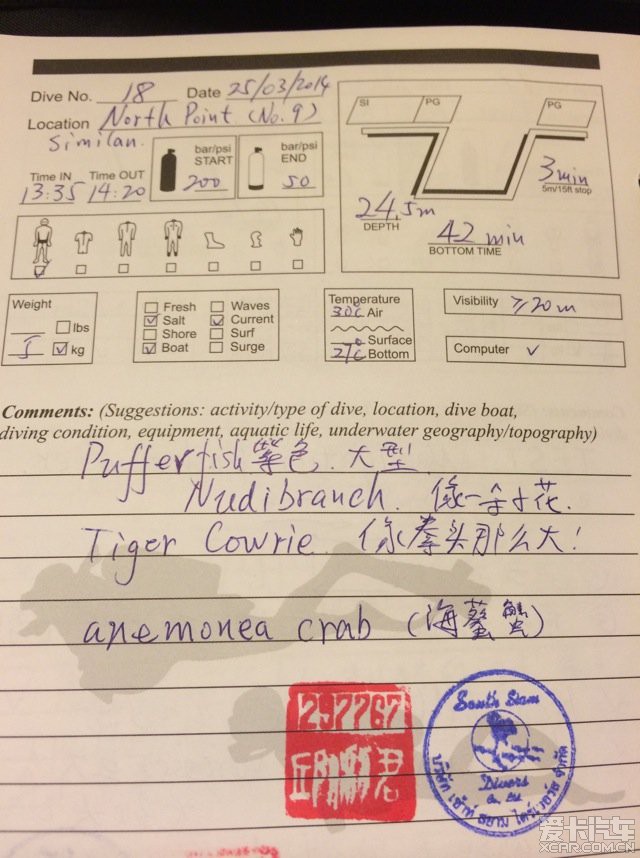 Dive No. 18 Date 25/03/2014
Location North Point (No. 9)
Similan.
bar/psi
START
200
bar/psi
END
50
Time IN Time OUT
13:35 14:20
SI PG PG
3 min
5m/15ft stop
24.5m
DEPTH
42 min
BOTTOM TIME
Weight
lbs
5 kg
Fresh Waves
Salt Current
Shore Surf
Boat Surge
Temperature
30C Air
Surface
27C Bottom
Visibility ≥20m
Computer ✓
Comments: (Suggestions: activity/type of dive, location, dive boat,
diving condition, equipment, aquatic life, underwater geography/topography)
Pufferfish 紫色.大型.
Nudibranch. 像一朵小花.
Tiger Cowrie 像拳头那么大!
anemonea crab (海葵蟹)
297767
South Siam
Divers
Co., Ltd.
บริษัท เซ้าท์ สยาม ไดเวอร์ส จำกัด
爱卡汽车
XCAR.COM.CN